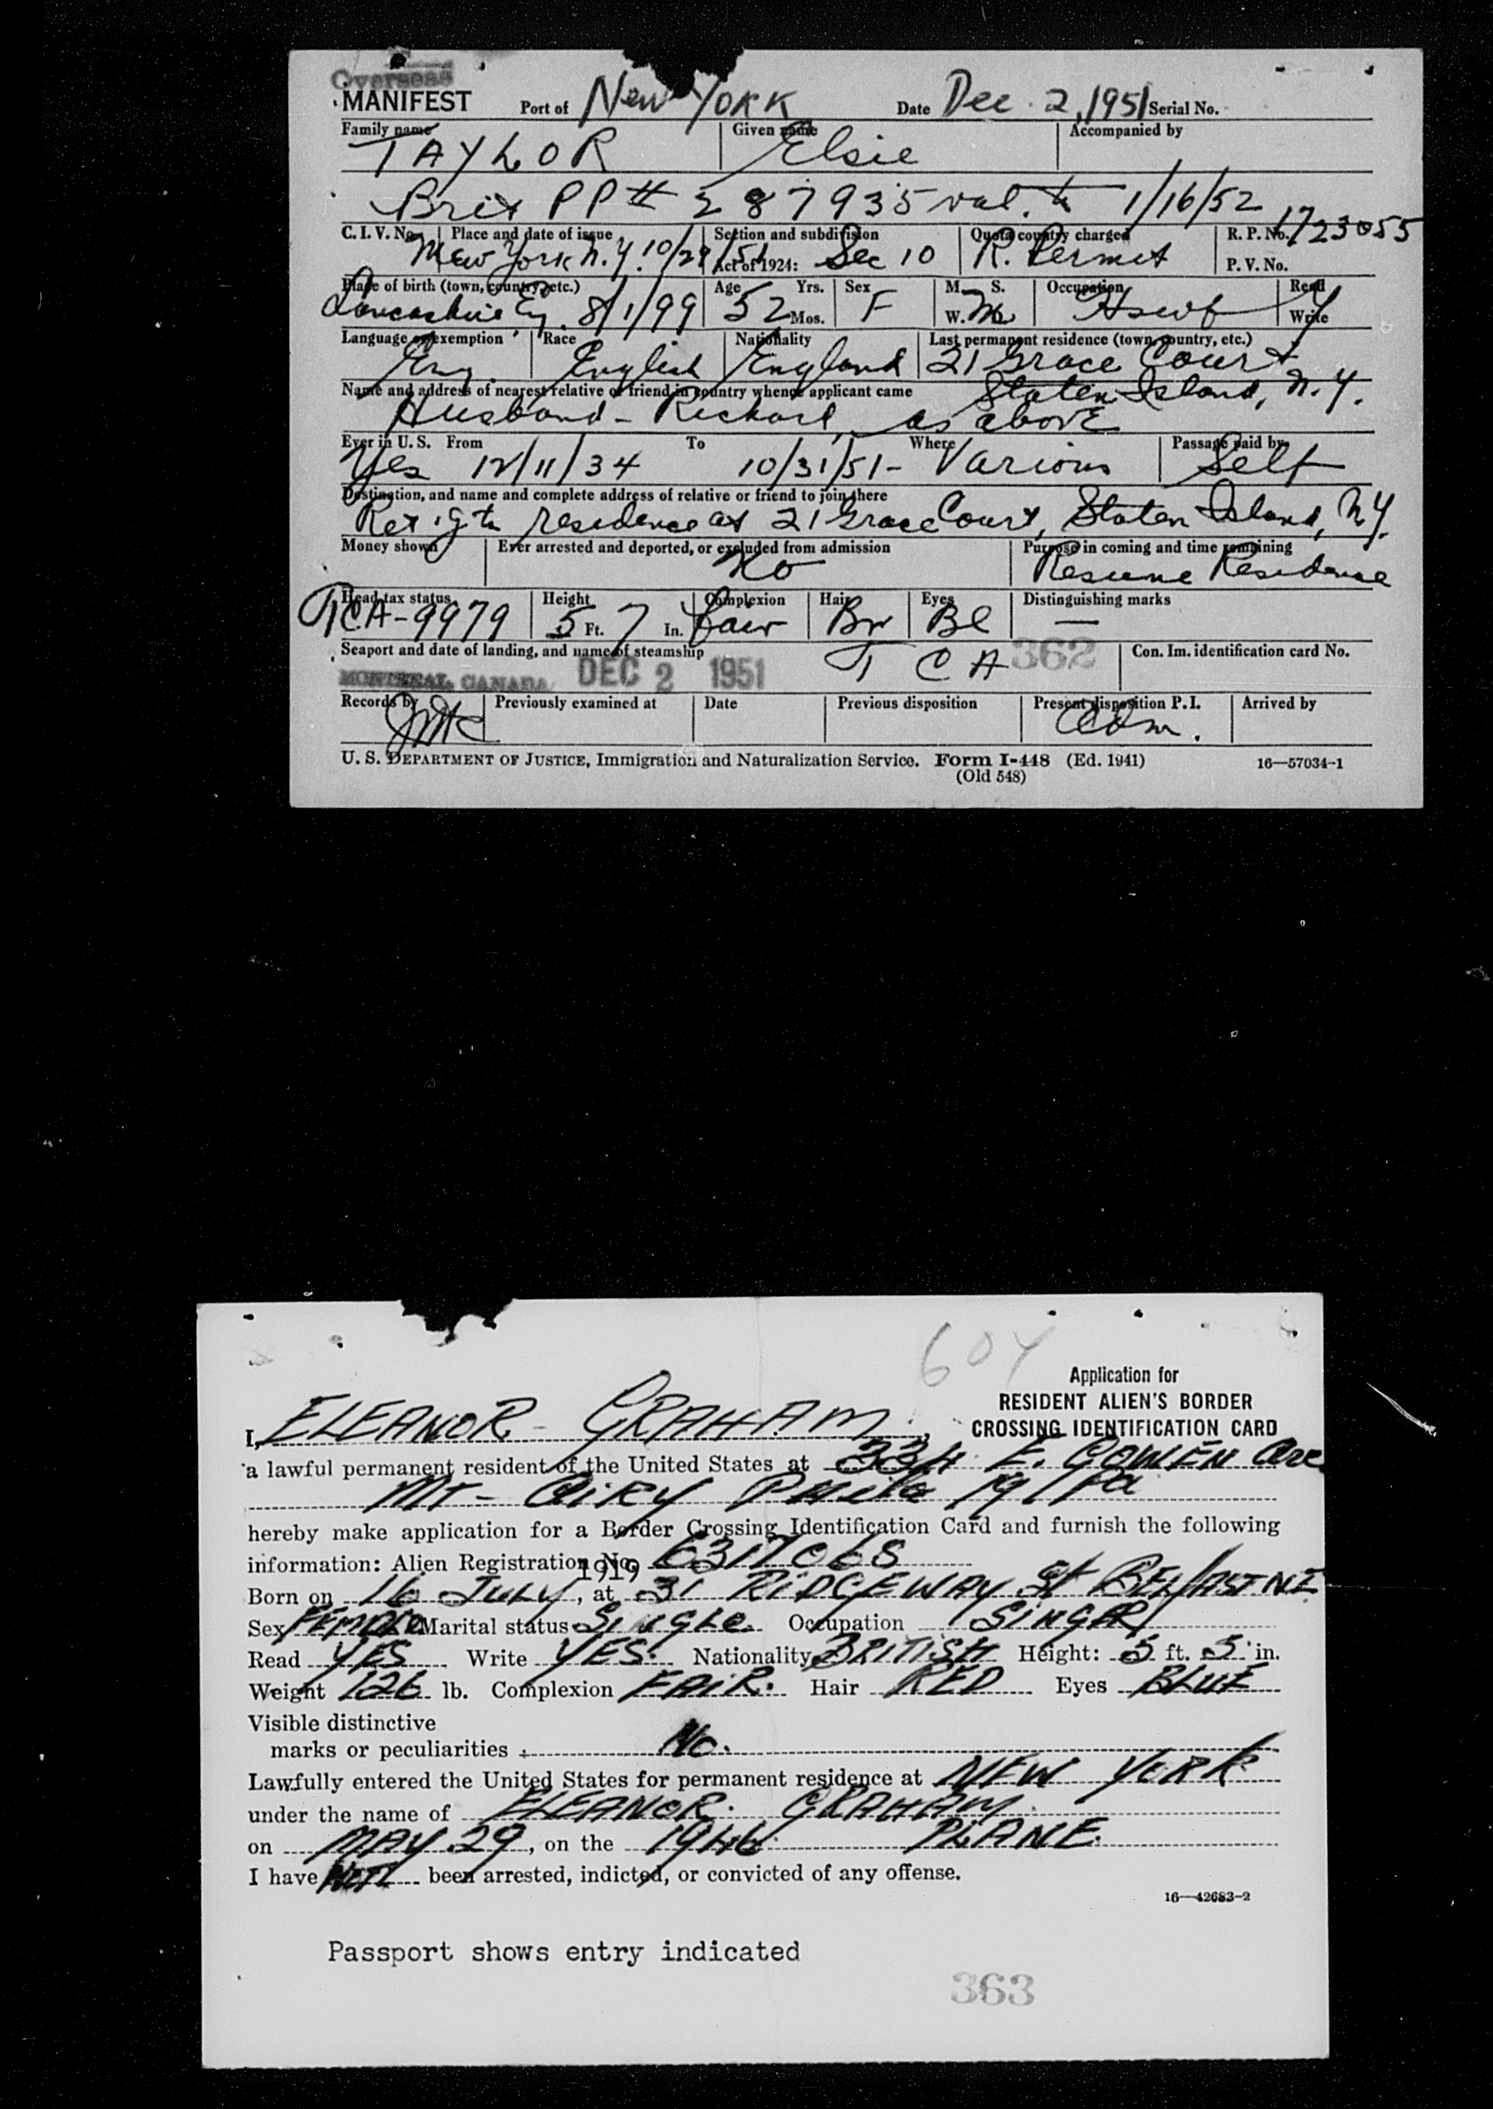 Overseas
MANIFEST Port of New York Date Dec. 2, 1951 Serial No.
Family name Given name Accompanied by
TAYLOR Elsie
Brit PP# 287935 val. to 1/16/52
C. I. V. No. Place and date of issue Section and subdivision Quota country charged R. P. No. 1723055
New York N.Y. 10/29/51 Act of 1924: Sec 10 R. Permit P. V. No.
Place of birth (town, country, etc.) Age Yrs. Sex M. S. Occupation Read
Lancashire Eng. 8/1/99 52 Mos. F W. M Hswf Y Write
Language or exemption Race Nationality Last permanent residence (town, country, etc.)
Eng. English England 21 Grace Court
Name and address of nearest relative or friend in country whence applicant came Staten Island, N.Y.
Husband - Richard, as above
Ever in U. S. From To Where Passage paid by
Yes 12/11/34 10/31/51 - Various Self
Destination, and name and complete address of relative or friend to join there
Ret'g to residence at 21 Grace Court, Staten Island, NY.
Money shown Ever arrested and deported, or excluded from admission Purpose in coming and time remaining
No Resume Residence
Head tax status Height Complexion Hair Eyes Distinguishing marks
TCA-9979 5 Ft. 7 In. Fair Br Bl —
Seaport and date of landing, and name of steamship T C A 362 Con. Im. identification card No.
MONTREAL, CANADA DEC 2 1951
Records by Previously examined at Date Previous disposition Present disposition P. I. Arrived by
Adm.
U. S. DEPARTMENT OF JUSTICE, Immigration and Naturalization Service. Form I-448 (Ed. 1941) 16—57034-1
(Old 548)
604
Application for
RESIDENT ALIEN'S BORDER
CROSSING IDENTIFICATION CARD
I, ELEANOR GRAHAM,
a lawful permanent resident of the United States at 334 E. GOWEN Ave
Mt - AiRY Phila 19 Pa
hereby make application for a Border Crossing Identification Card and furnish the following
information: Alien Registration No. 6317068
1919
Born on 16 July, at 31 RIDGEWAY St BELFAST N.I.
Sex FEMALE Marital status Single Occupation SINGER
Read YES Write YES. Nationality BRITISH Height: 5 ft. 5 in.
Weight 126 lb. Complexion FAIR. Hair RED Eyes BLUE
Visible distinctive
marks or peculiarities No.
Lawfully entered the United States for permanent residence at NEW YORK
under the name of ELEANOR. GRAHAM.
on MAY 29, on the 1946. PLANE.
I have NOT been arrested, indicted, or convicted of any offense.
16—42683-2
Passport shows entry indicated
363